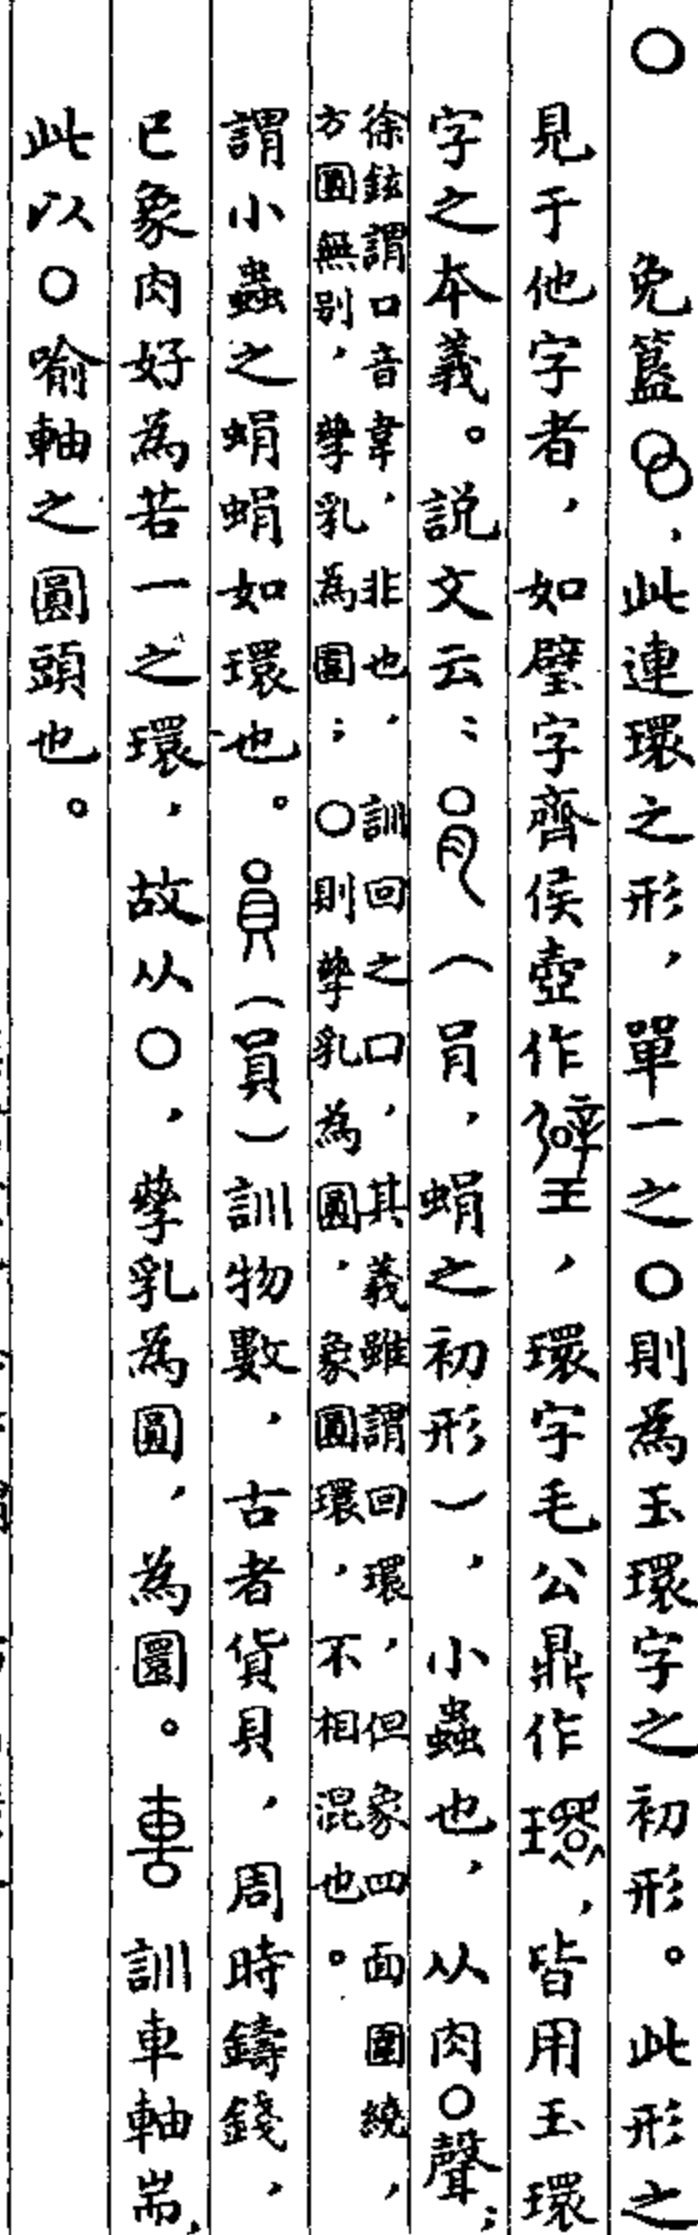 〇　免簠，此連環之形，單一之〇則為玉環字之初形。此形之
見于他字者，如璧字齊侯壺作，環字毛公鼎作，皆用玉環
字之本義。説文云：（肙，蜎之初形），小蟲也，从肉〇聲；
徐鉉謂口音韋，非也，訓回之口，其義雖謂回環，但象四面圍繞，
方圓無别，孳乳為圍；〇則孳乳為圓，象圓環，不相混也。
謂小蟲之蜎蜎如環也。（員）訓物數，古者貨貝，周時鑄錢，
已象肉好為若一之環，故从〇，孳乳為圓，為圜。訓車軸耑，
此以〇喻軸之圓頭也。